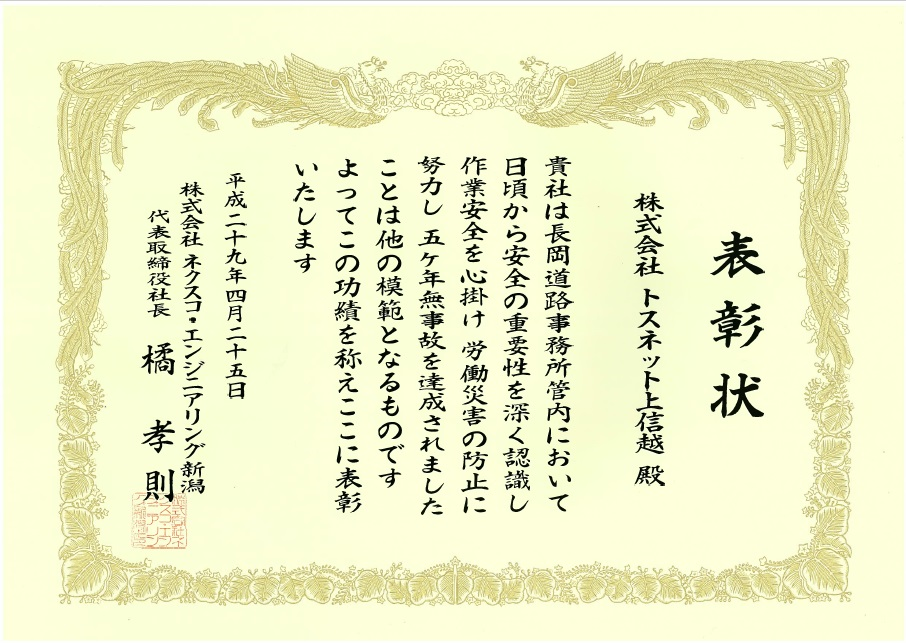 表彰状
株式会社 トスネット上信越 殿
貴社は長岡道路事務所管内において
日頃から安全の重要性を深く認識し
作業安全を心掛け 労働災害の防止に
努力し 五ケ年無事故を達成されました
ことは他の模範となるものです
よってこの功績を称えここに表彰
いたします
平成二十九年四月二十五日
株式会社 ネクスコ・エンジニアリング新潟
代表取締役社長
橘 孝則